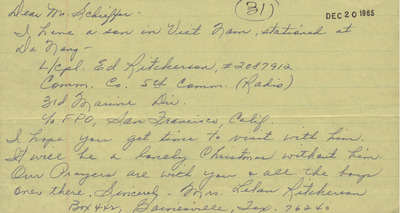 Dear Mr. Schieffer. (31) DEC 20 1965
I have a son in Viet Nam, stationed at
Da Nang —
L/cpl. Ed Ritcherson, #2087912
Comm. Co. 5th Comm. (Radio)
3rd Marine Div.
c/o F.P.O., San Francisco, Calif.
I hope you get time to visit with him.
It will be a lonely Christmas without him.
Our Prayers are with you & all the boys
over there. Sincerely - Mrs. Ritcherson
Box 442, Gainesville, Tex. 76240